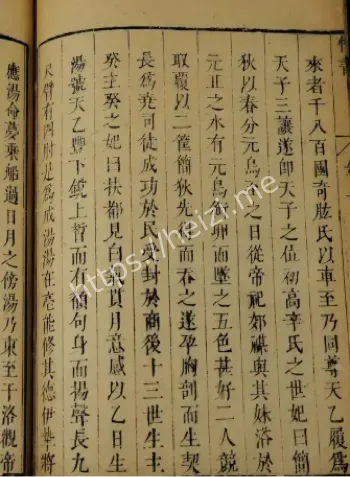 來者千八百國奇肱氏以車至乃同尊天乙履爲
天子三讓遂即天子之位初高辛氏之世妃曰簡
狄以春分元鳥至之日從帝祀郊禖與其妹浴於
元正之水有元鳥銜卵而墜之五色甚好二人競
取覆以二筐簡狄先得而吞之遂孕胸剖而生契
長爲堯司徒成功於民受封於商後十三世生主
癸主癸之妃曰扶都見白氣貫月意感以乙日生
湯號天乙豐下鋭上晳而有髯句身而揚聲長九
尺臂有四肘是爲成湯湯在亳能修其德伊摯將
應湯命夢乘船過日月之傍湯乃東至于洛觀帝
https://heizi.me